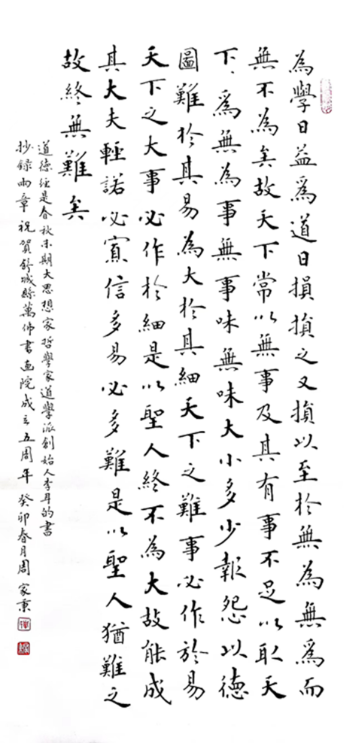 為學日益為道日損損之又損以至於無為無為而
無不為矣故天下常以無事及其有事不足以取天
下為無為事無事味無味大小多少報怨以德
圖難於其易為大於其細天下之難事必作於易
天下之大事必作於細是以聖人終不為大故能成
其大夫輕諾必寡信多易必多難是以聖人猶難之
故終無難矣
道德经是春秋末期大思想家哲學家道學派創始人李耳的書
抄録兩章祝賀舒城縣萬佛書画院成立五周年癸卯春月周家東